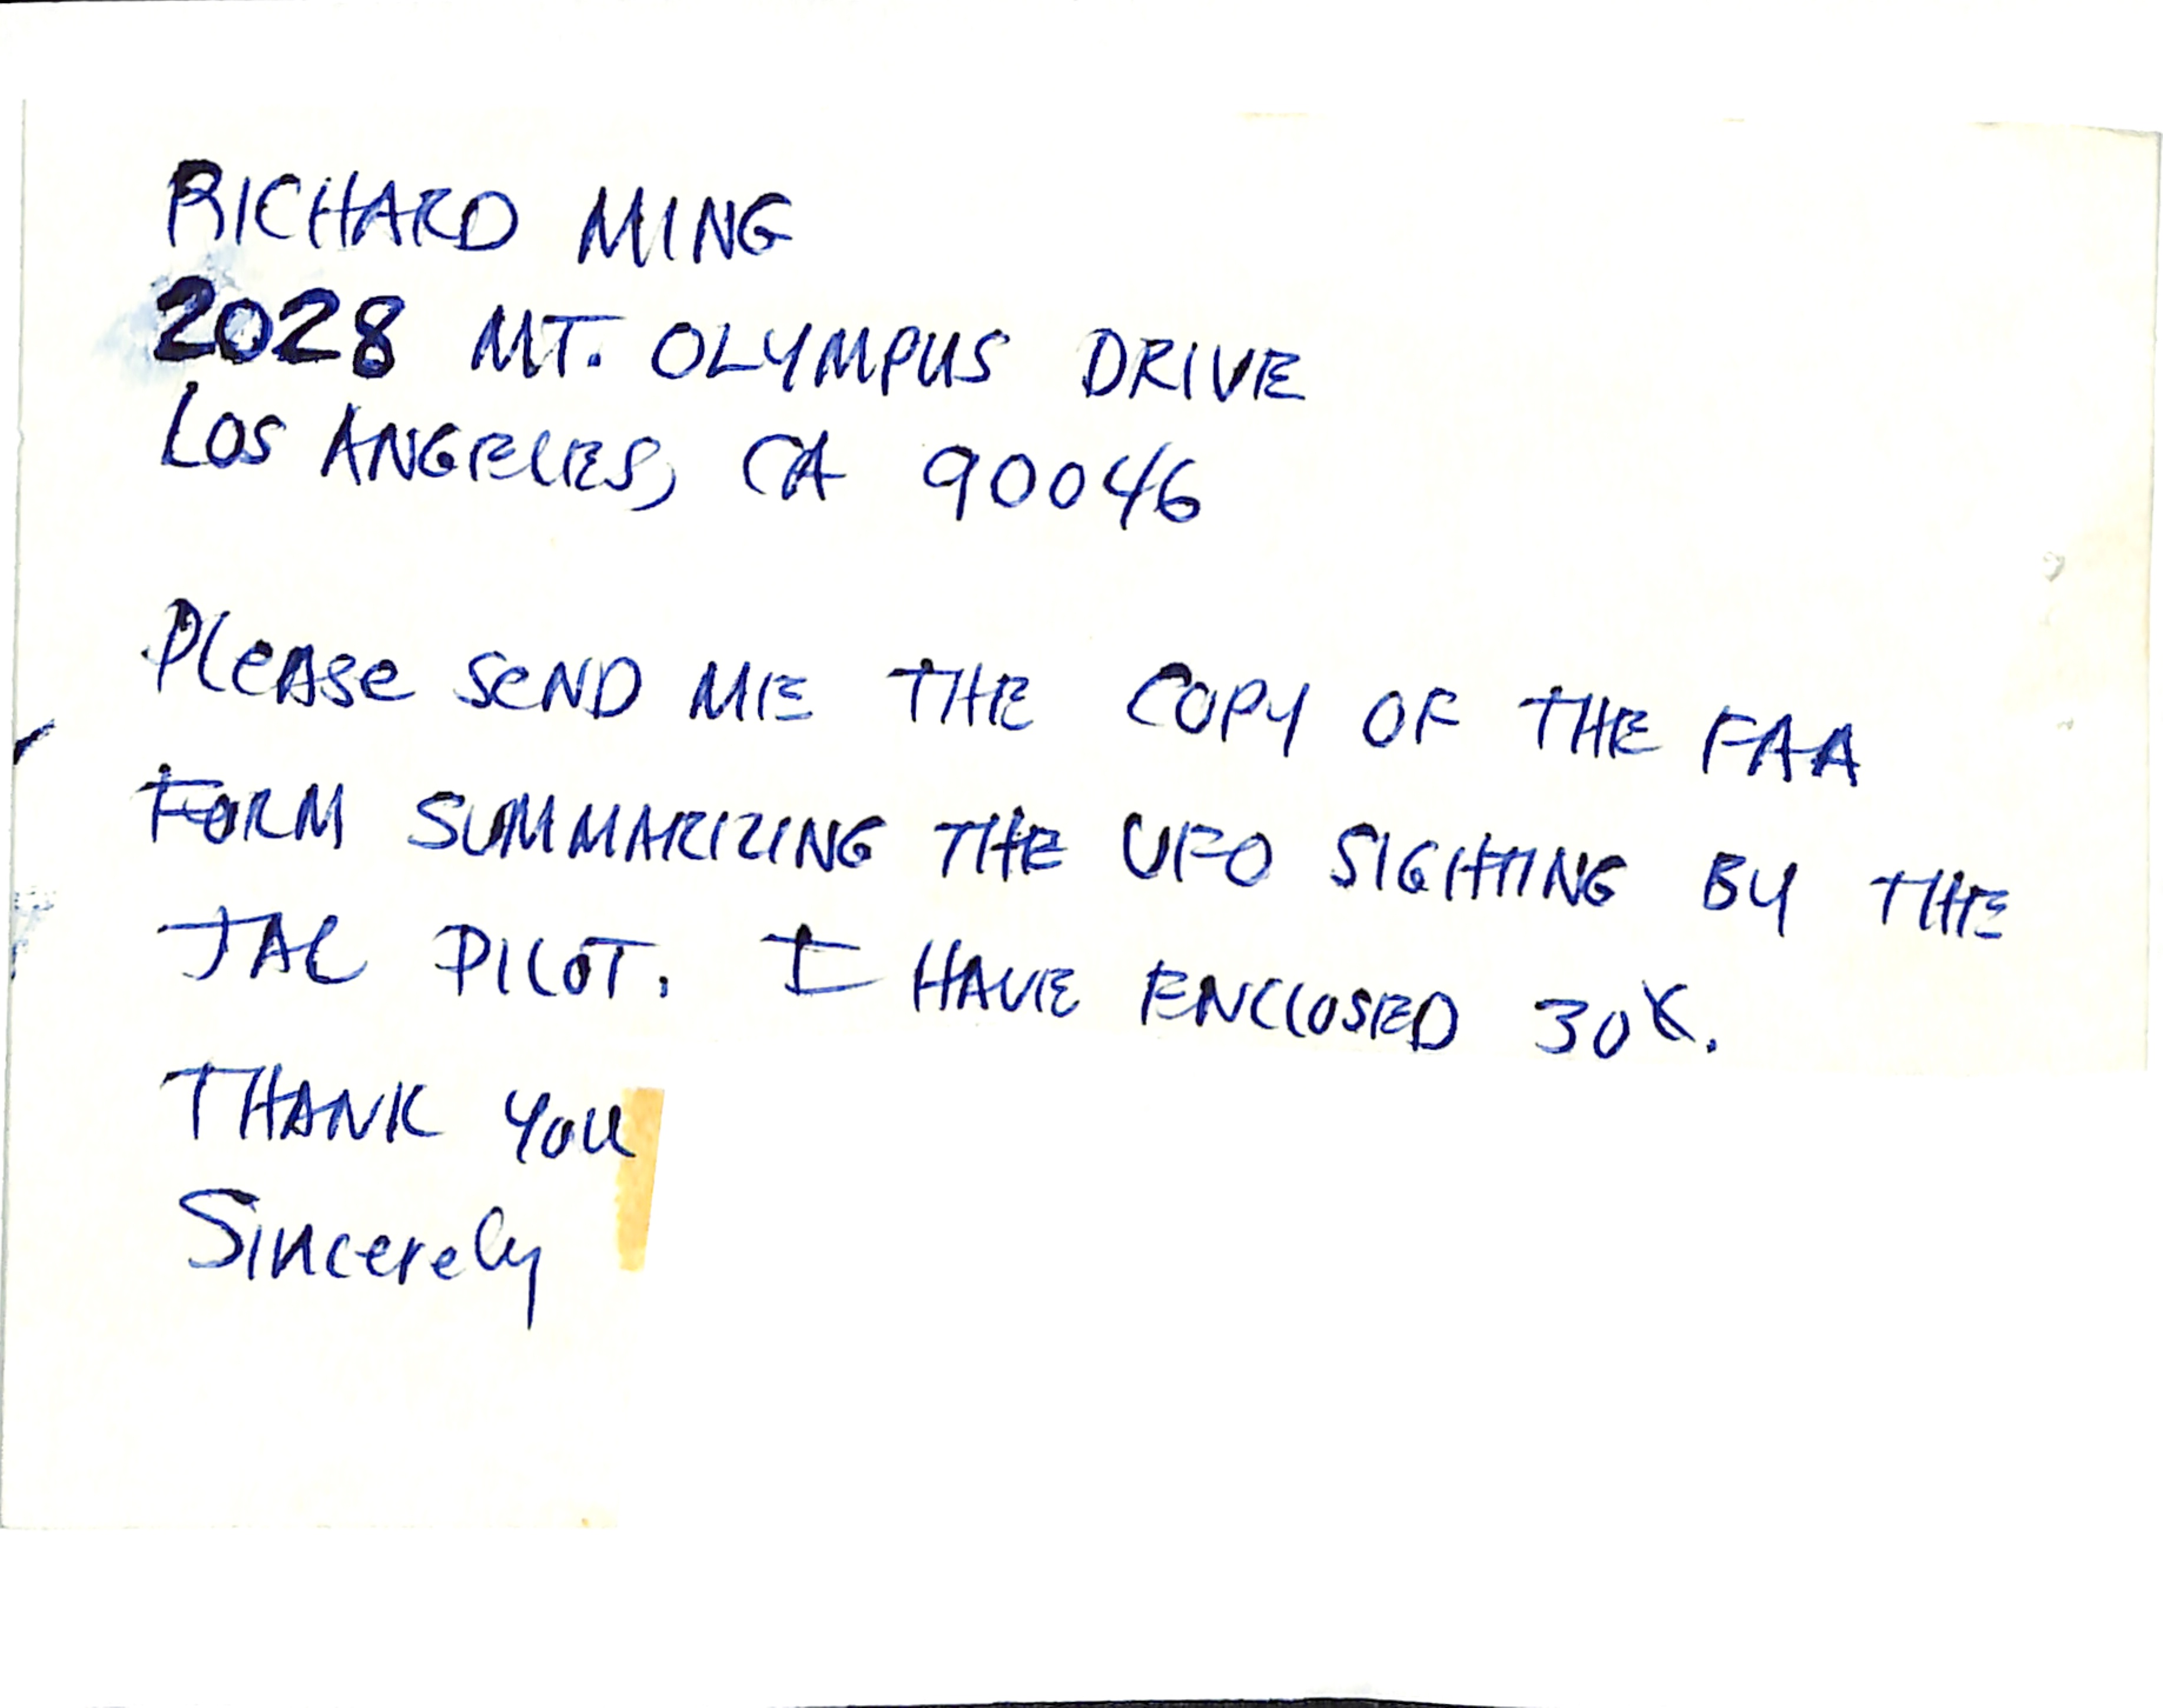 RICHARD MING
2028 MT. OLYMPUS DRIVE
LOS ANGELES, CA 90046
PLEASE SEND ME THE COPY OF THE FAA
FORM SUMMARIZING THE UFO SIGHTING BY THE
JAL PILOT. I HAVE ENCLOSED 30¢.
THANK YOU
Sincerely